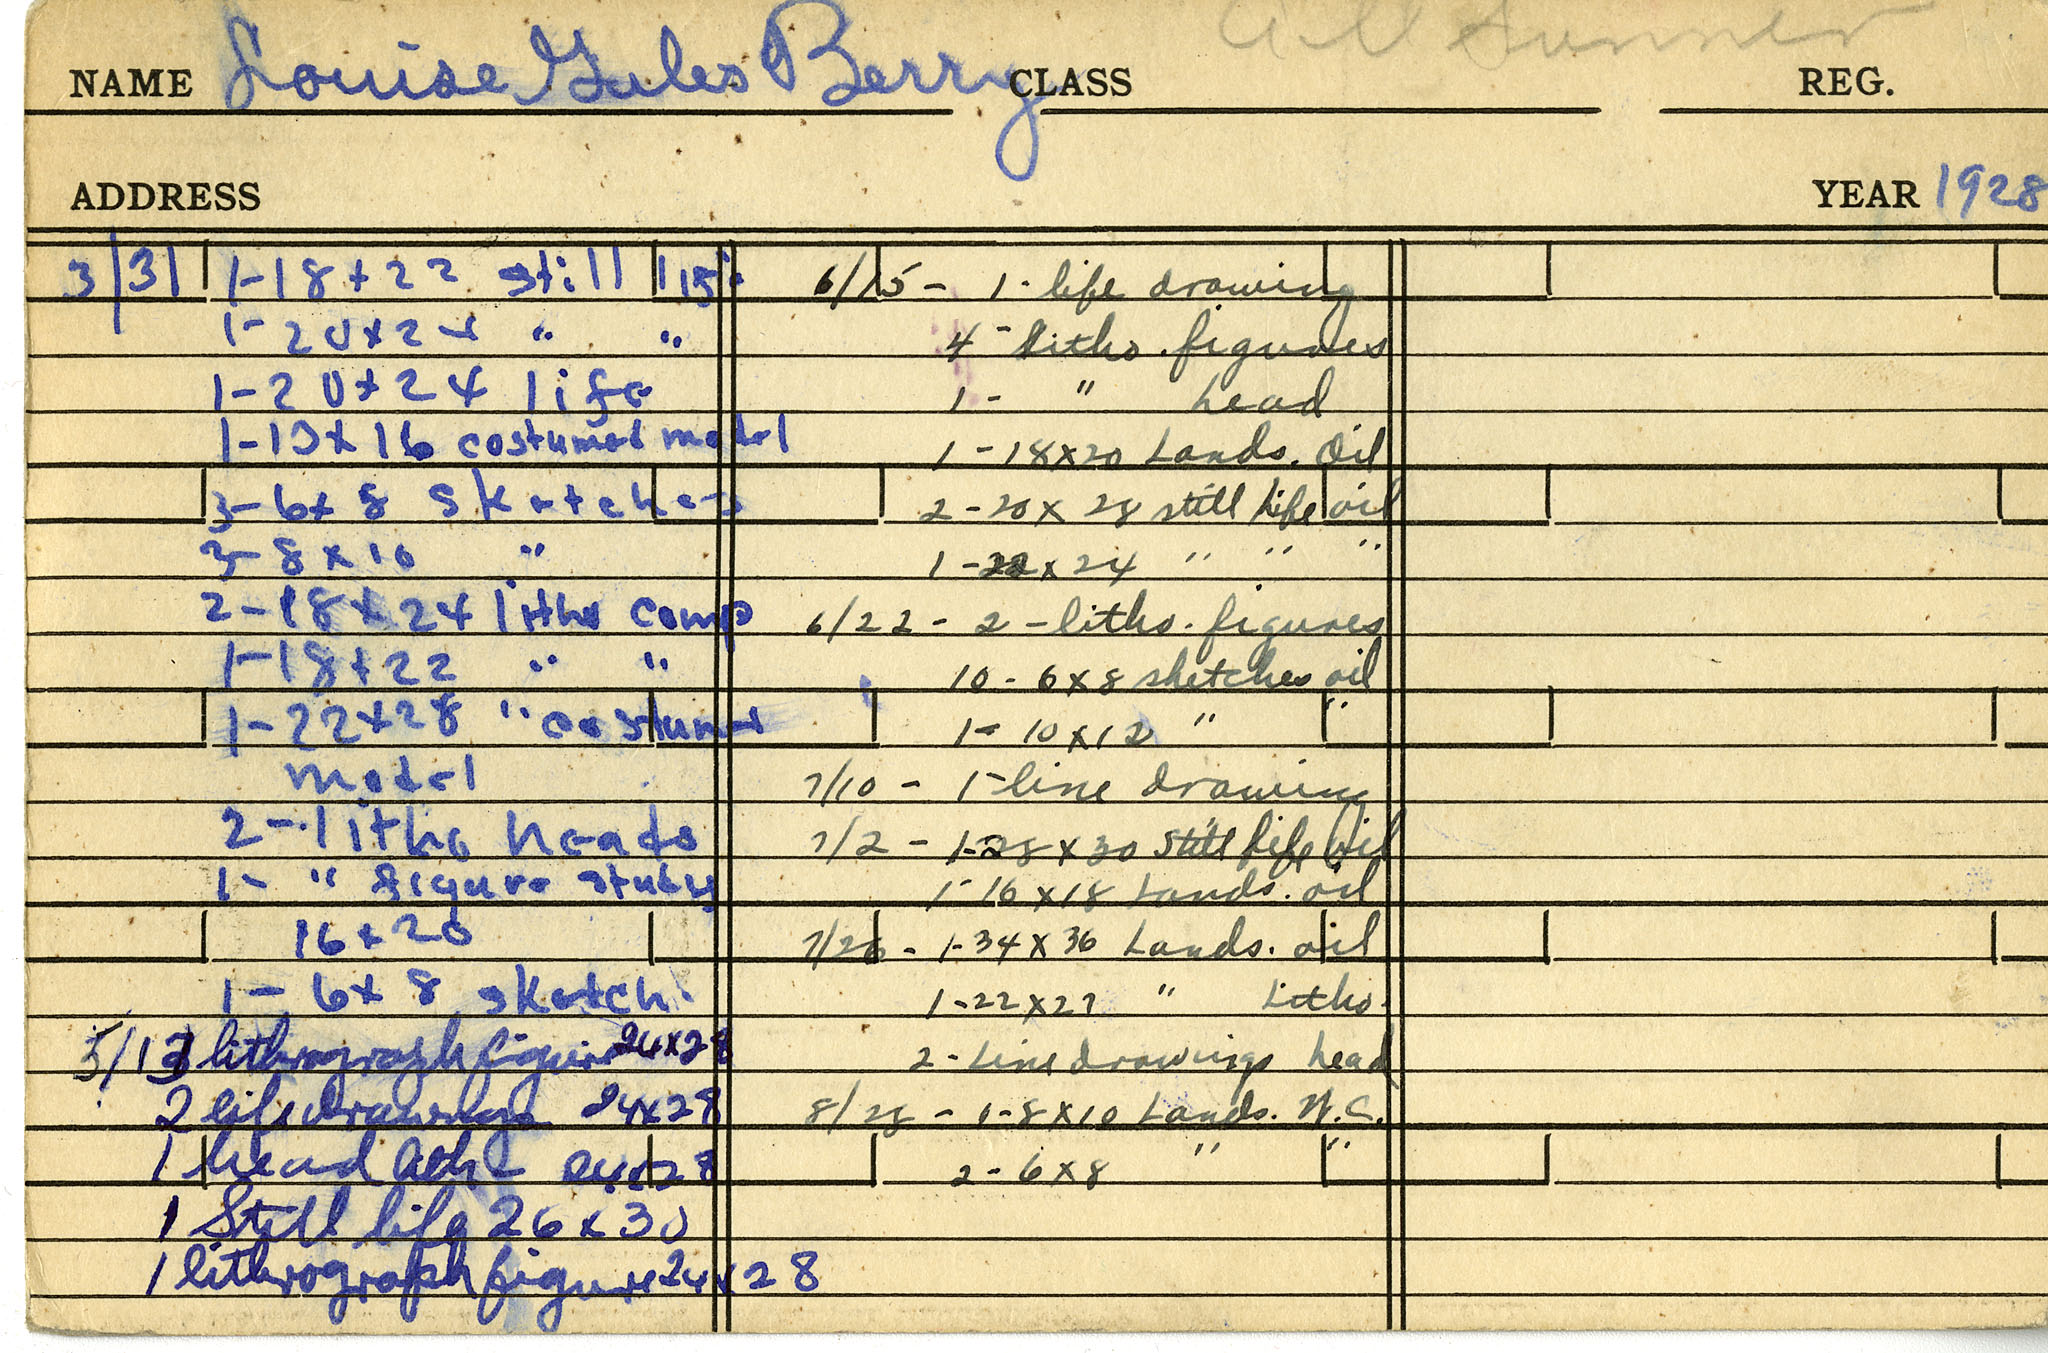 All Summer
NAME Louise Giles Berry CLASS REG.
ADDRESS YEAR 1928
3/31 1-18x22 still 115
1-20x24 " "
1-20x24 life
1-13x16 costumed model
3-6x8 sketches
3-8x10 "
2-18x24 litho comp
1-18x22 " "
1-22x28 " costumed
model
2-litho heads
1- " figure study
16x20
1-6x8 sketch
5/13 lithrograph figure 24x28
2 life drawings 24x28
1 head 24x28
1 Still life 26x30
1 lithrograph figure 24x28
6/15 - 1-life drawing
4-litho. figures
1- " head
1-18x20 Lands. Oil
2-20x28 still life oil
1-22x24 " " "
6/22 - 2-litho. figures
10-6x8 sketches oil
1-10x12 " "
7/10 - 1-line drawing
7/2 - 1-28x30 Still life Oil
1-16x18 Lands. oil
7/26 - 1-34x36 Lands. oil
1-22x27 " Litho.
2-Line drawings head
8/28 - 1-8x10 Lands. W.C.
2-6x8 " "